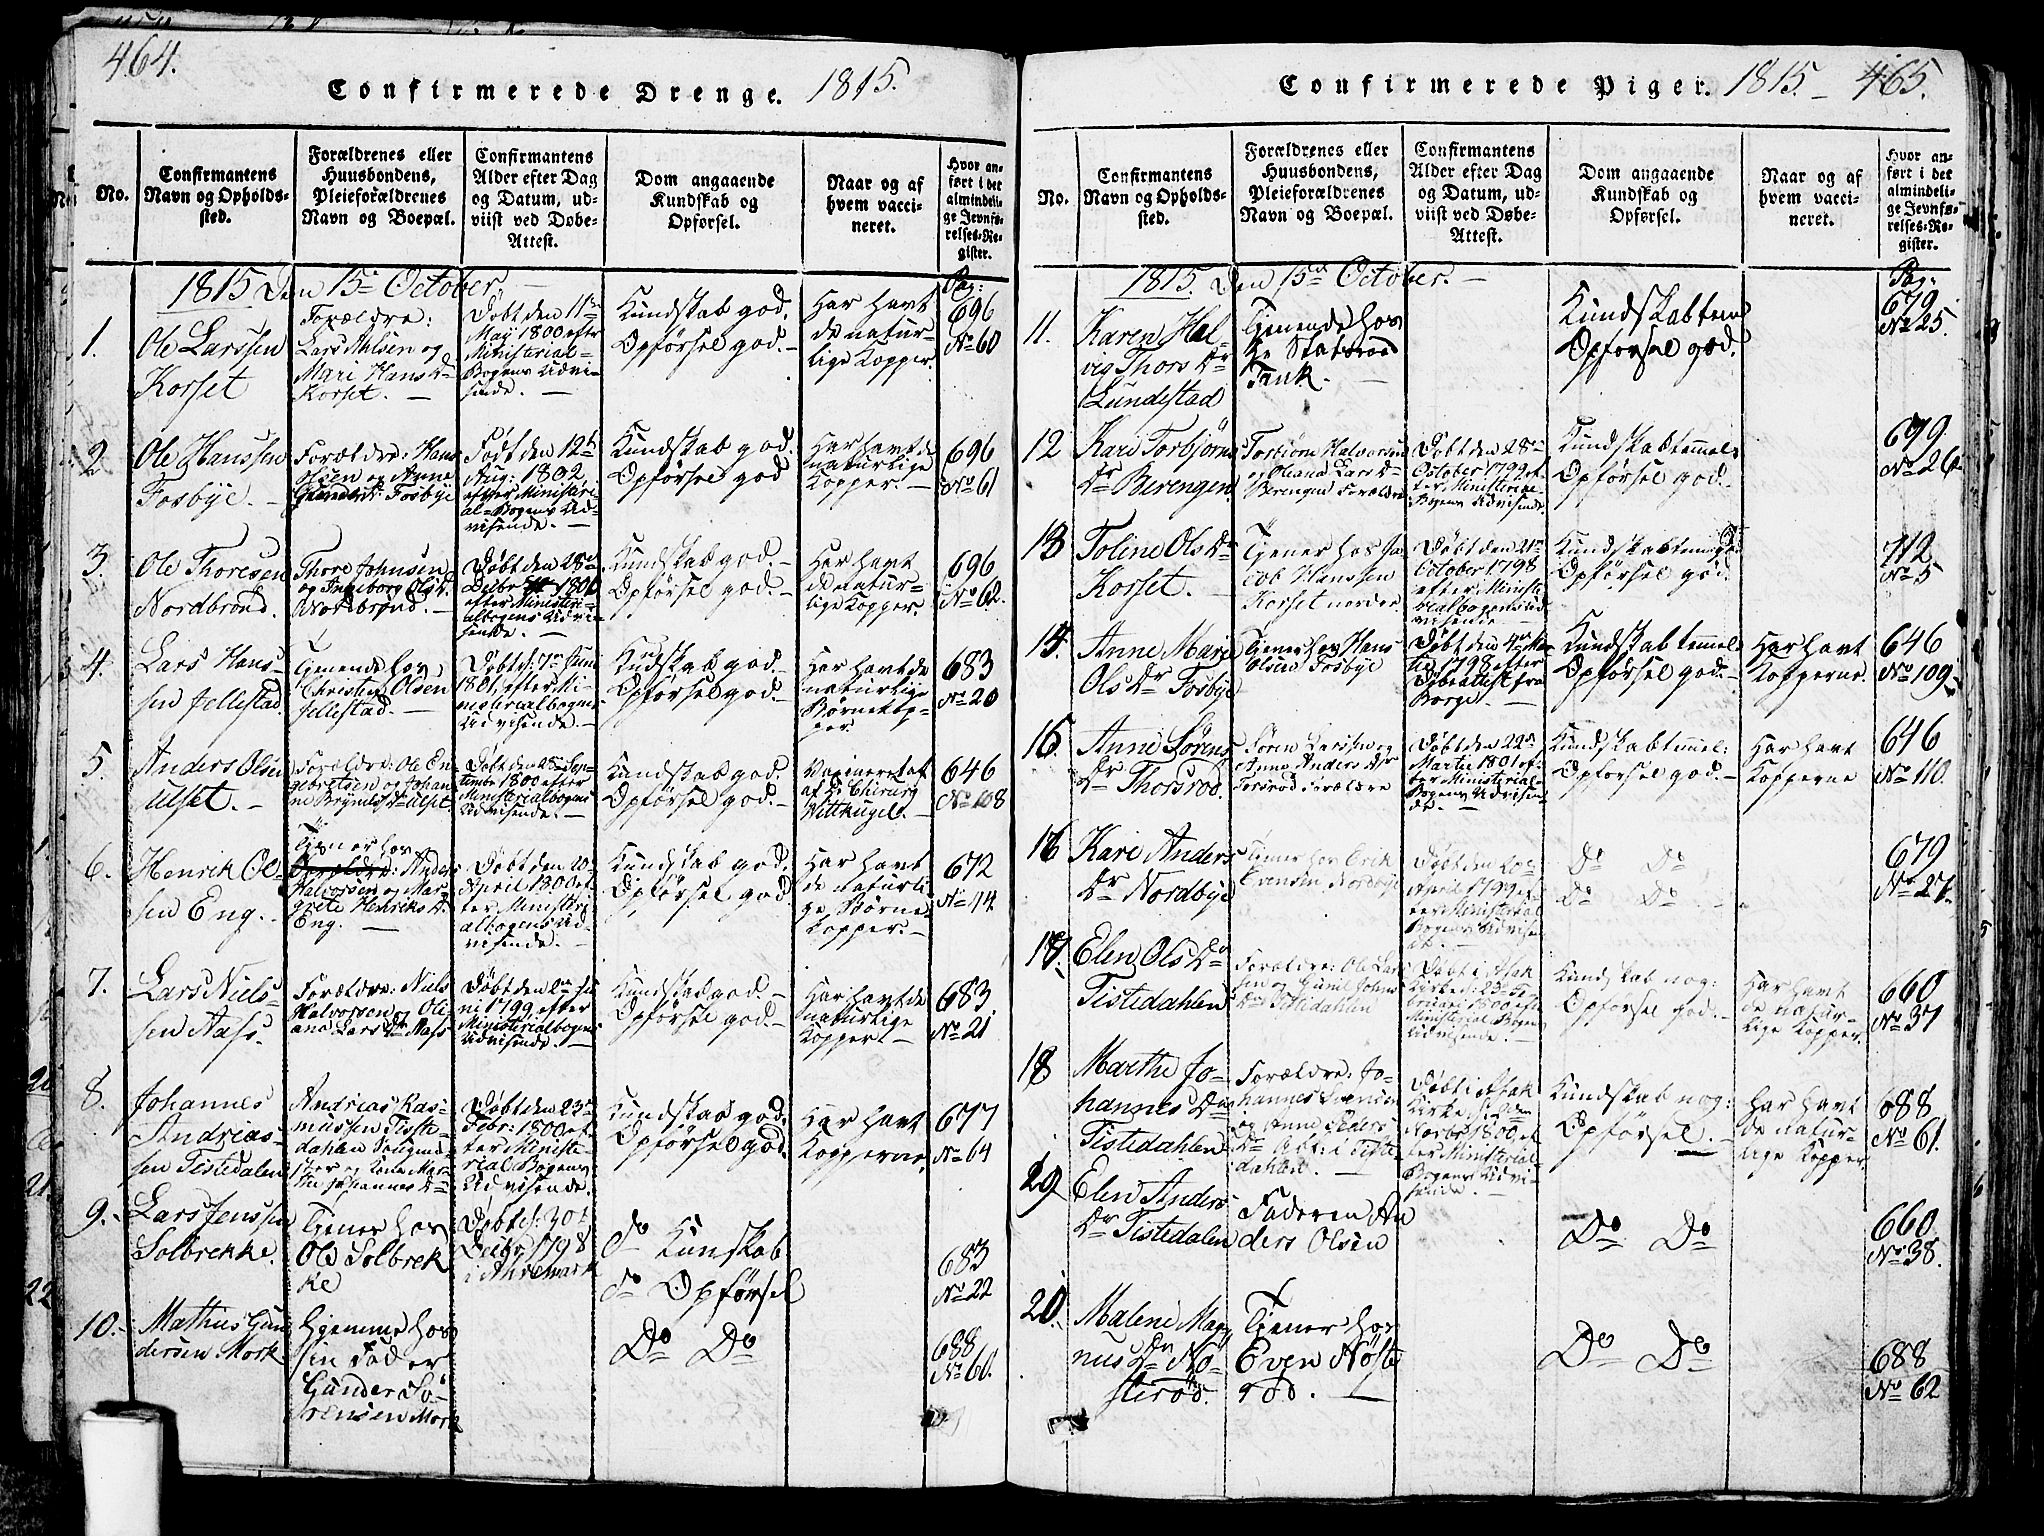 464.
Confirmerede Drenge. 1815.
No.
Confirmantens
Navn og Opholds-
sted.
Forældrenes eller
Huusbondens,
Pleieforældrenes
Navn og Boepæl.
Confirmantens
Alder efter Dag
og Datum, ud-
viist ved Døbe-
Attest.
Dom angaaende
Kundskab og
Opførsel.
Naar og af
hvem vacci-
neret.
Hvor an-
ført i det
almindeli-
ge Jevnfø-
relses-Re-
gister.
1815 Den 15de October.
Pag:
1.
Ole Larssen
Korset
Forældre:
Lars Nilsen og
Mari Hans Dr
Korset. —
Døbt den 11te
May 1800 efter
Ministerial-
Bogens Udvi-
sende. —
Kundskab god.
Opførsel god. —
Har havt
de natur-
lige Kopper.
696
No 60
2
Ole Hanssen
Fosbye. —
Forældre: Hans
Olsen og Anne
Fosbye
Født den 12te
Aug: 1802
efter Ministeri-
al-Bogens Ud-
visende. —
Kundskab god.
Opførsel god
Har havt de
naturlige
Kopper. —
696
No 61
3.
Ole Thoresen
Nordbrønd.
Thore Johnsen
og Ingeborg Ols Dr
Nordbrønd. —
Døbt den 28de
Decbr 1800
efter Ministeri-
albogens Udvi-
sende. —
Kundskab god. —
Opførsel god. —
Har havt
de natur-
lige Kopper.
696
No 62.
4.
Lars Hans-
sen Jellestad.
Tjenende hos
Christen Olsen
Jellestad. —
Døbt d: 7de Juni
1801, efter Mi-
nisterialbogens
Udvisende. —
Kudskab god. —
Opførsel god. —
Har havt de
naturlige
Børnekop-
per.
683
No 20
5.
Anders Olsen
Ulset. —
Forældre: Ole En-
gebretsen og Johan-
ne Brynilds Dr Ulset.
Døbt den Sep-
tember 1800 efter
Ministerialbogens
Udvisende. —
Kundskab god.
Opførsel god. —
Vaxineret af
af Hr Chirurg
Wittkugel. —
646
No 108
6.
Henrik Ol-
sen Eng. -
Tjener hos
Forældre: Anders
Halvorsen og Mar-
grete Henriks Dr
Eng. —
Døbt den 20de
April 1800 ef-
ter Ministeri-
albogens Ud-
visende. —
Kundskab god.
Opførsel god
Har havt
de naturli-
ge Børne-
kopper. —
672
No 44.
7.
Lars Niels-
sen Næss.
Forældre: Niels
Halvorsen og Oli-
ana Lars Dr Næss
Døbt den 2den Ju-
ni 1799 efter
Ministerialbogens
Udvisende. —
Kundskab god. —
Opførsel god. —
Har havt de
naturlige
Kopper. —
683
No 21
8.
Johannes
Andrias-
sen Tistedalen
Andrias Ras-
mussen Tiste-
dahlen
og Kone Mar-
the Johannes Dr
Døbt den 23de
Febr: 1800 ef-
ter Ministe-
rial Bogens
Udvisende. —
Kundskab god.
Opførsel god.
Har havt
Kopperne.
677
No 64
9. —
Lars Jenssen
Solbrekke.
Tjener hos
Ole Solbrek
ke
Døbt d: 30te
Decbr 1798
i Ahremark
do Kunskab
do Opførsel
683
No 22
10. —
Mathias Gun
dersen Mørk.
Hjemme hos
sin Fader
Gunder Sö-
rensen Mørk
Do Do
688
No 60.
Confirmerede Piger. 1815. — 465.
No.
Confirmantens
Navn og Opholds-
sted.
Forældrenes eller
Huusbondens,
Pleieforældrenes
Navn og Boepæl.
Confirmantens
Alder efter Dag
og Datum, ud-
viist ved Døbe-
Attest.
Dom angaaende
Kundskab og
Opførsel.
Naar og af
hvem vacci-
neret.
Hvor an-
ført i det
almindeli-
ge Jevnfø-
relses-Re-
gister.
1815. Den 15de October. —
Pag:
11.
Karen Hel-
vig Thors Dr
Lundestad
Tjenende hos
Hr Statsraad
Tank. —
Kundskab tem
Opførsel god.
679
No 25.
12
Kari Torbjörns
Dr Berengen
Torbiörn Halvorsen
og Oliana Lars Dr
Berengen Forældre
Døbt den 28de
October 1799 ef-
ter Ministerial-
Bogens Udvisende.
Kundskab temmel:
Opførsel god. —
679.
No 26.
13
Toline Ols Dr
Korset. —
Tjener hos Ja-
cob Hanssen
Korset nordre.
Døbt den 21de
October 1798
efter Ministe-
rialbogens Ud-
visende —
Kundskab temmel:
Opførsel god.
712
No 5
14.
Anne Marie
Ols Dr Fosbye
Tjener hos Hans
Olsen Fosbye
Døbt den 4de
1798 efter
Døbeattest fra
Borge. —
Kundskab temmel:
Opførsel god. —
Har havt
Kopperne.
646
No 109.
15.
Anne Sörens
Dr Thorsrød.
Søren Larssen og
Anne Anders Dr
Torsrød Forældre
Døbt den 22de
Martii 1801 ef-
ter Ministerial-
Bogens Udvisen-
de. —
Kundskab temmel:
Opførsel god. —
Har havt
Kopperne
646
No 110.
16
Kari Anders
Dr Nordbye
Tjener hos Erik
Evensen Nordbye
Døbt den 20de
April 1799 ef-
ter Ministerial
Bogens Udvisen-
de. —
Do Do
Do Do —
679
No 27.
17.
Elen Ols Dr
Tistedahlen
Forældre: Ole Lars-
sen og Gunil Johns
Dr Tistedahlen
Døbt i Asak
Kirke d: 23de Fe-
bruari 1800 efter
Ministerial Bogens
Udvisende. —
Kundskab nog:
Opførsel god. —
Har havt
de natur-
lige Kopper.
660
No 37
18
Marthe Jo-
hannes Dr
Tistedahlen
Forældre: Jo-
hannes Svensen
og Anne Peders
Dr Tiste
dahlen. —
Døbt i Asak
Kirke
Novbr 1800 ef-
ter Ministerial-
Bogens Udvi-
sende. —
Kundskab nog:
Opførsel. —
Har havt
de natur-
lige Kopper
688
No 61.
Elen Anders
Dr Tistedalen
Faderen An
ders Olsen
Do Do
660.
No 38.
20.
Malene Mag
nus Dr Nö-
sterød.
Tjener hos
Even Nøste
rød. —
Do Do
688
No 62